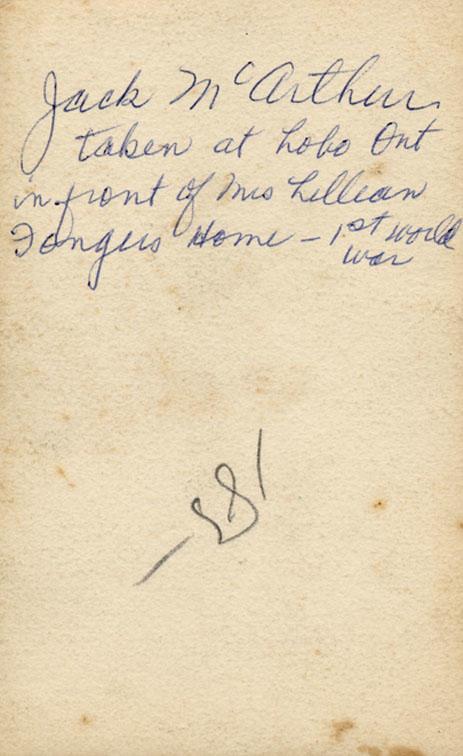 Jack McArthur
taken at Lobo Ont
in front of Mrs Lillean
Fangers Home – 1st world
war